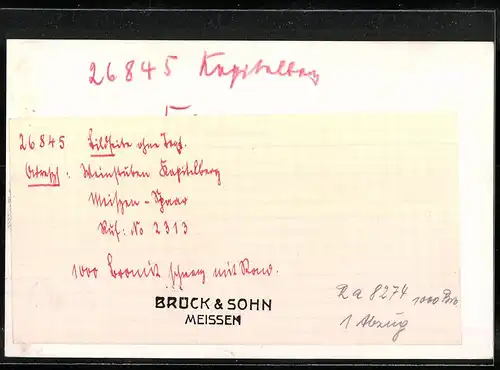 26845 Kapitelberg
26845 Bildseite ohne Text.
Adresse: Weinstuben Kapitelberg
Meißen-Spaar
Ruf: No 2313
1000 Bromit schwarz mit Rand.
BRÜCK & SOHN
MEISSEN
Ra 8274 1000 Bro
1 Abzug